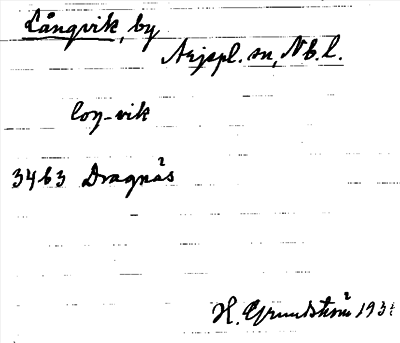 Långvik, by
Arjepl. sn, Nb. l.
loŋ-vik
3463 Dragnäs
H. Grundström 193